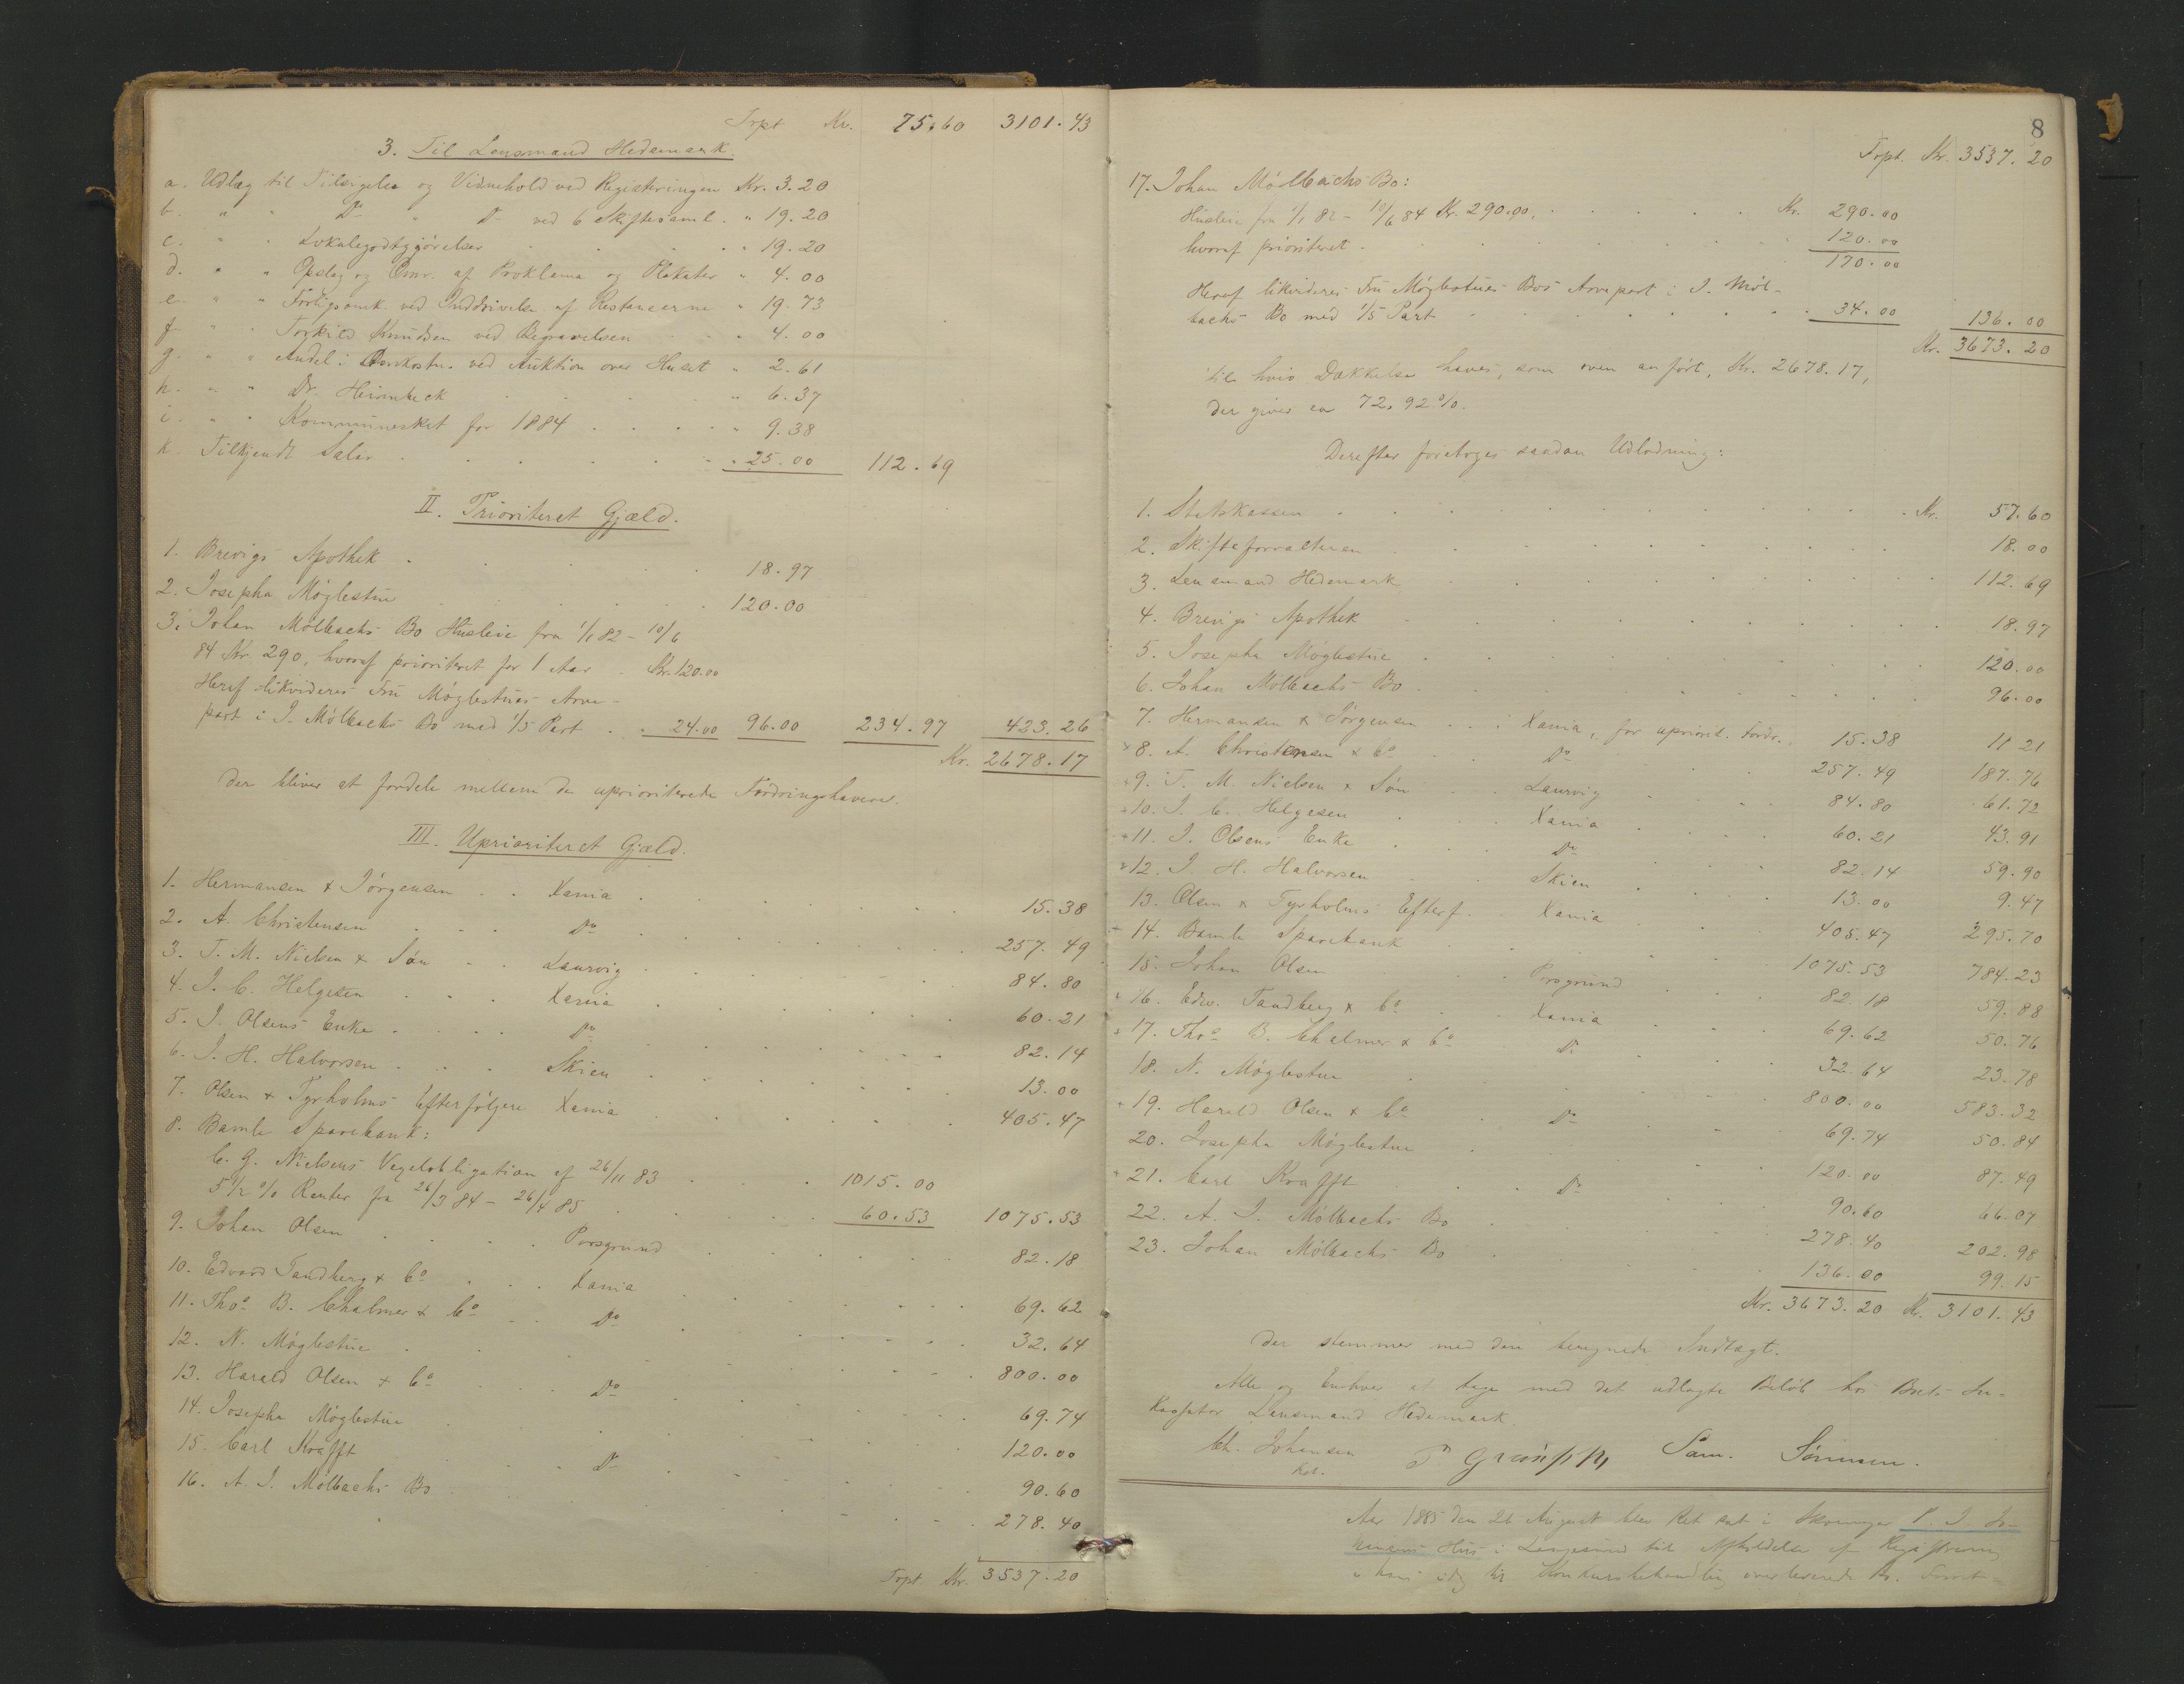 Trpt Kr. 75.60 3101.43
3. Til Lensmand Hedemark.
a. Udlæg til Tilsigelse og Vidnehold ved Registeringen Kr. 3.20
b. " " Do " Do ved 6 Skiftesaml. " 19.20
c. " " Lokalegodtgjörelser " 19.20
d. " " Opslag og Omr. af Proklama og Plakater " 4.00
e. " " Forligsomk. ved Inddrivelse af Restancerne " 19.73
f. " " Torkild Knudsen ved Begravelsen " 4.00
g. " " Andel i Omkostn. ved Auktion over Huset " 2.61
h. " " Dr. Heimbeck " 6.37
i. " " Kommuneskat for 1884 " 9.38
k. Tilkjendt Salær " 25.00 112.69
II. Prioriteret Gjæld.
1. Brevigs Apothek 18.97
2. Josepha Møglestue 120.00
3. Johan Mølbachs Bo Husleie fra 1/1 82 - 10/6
84 Kr. 290, hvoraf prioriteret for 1 Aar Kr. 120.00
Heraf likvideres Fru Møglestues Arve-
part i J. Mølbachs Bo med 1/5 Part 24.00 96.00 234.97 423.26
Kr. 2678.17
der bliver at fordele mellem de uprioriterede Fordringshavere.
III. Uprioriteret Gjæld.
1. Hermansen & Jørgensen Xania 15.38
2. A. Christensen Do 257.49
3. T. M. Nielsen & Søn Laurvig 84.80
4. J. C. Helgesen Xania 60.21
5. J. Olsens Enke Do 82.14
6. J. H. Halvorsen Skien 13.00
7. Olsen & Tyrholms Efterfølgere Xania 405.47
8. Bamle Sparebank:
C. G. Nielsens Vexelobligation af 26/11 83 1015.00
5 1/2 % Renter fra 26/3 84 - 26/4 85 60.53 1075.53
9. Johan Olsen Porsgrund 82.18
10. Edvard Tandberg & Co Xania 69.62
11. Thos B. Chalmer & Co Do 32.64
12. N. Møglestue 800.00
13. Harald Olsen & Co Do 69.74
14. Josepha Møglestue 120.00
15. Carl Krafft Do 90.60
16. A. J. Mølbachs Bo 278.40
Trpt. Kr. 3537.20
8
Trpt. Kr. 3537.20
17. Johan Mølbachs Bo:
Husleie fra 1/1 82 - 10/6 84 Kr. 290.00. Kr. 290.00
hvoraf prioriteret 120.00
170.00
Heraf likvideres Fru Møglestues Bos Arvepart i J. Møl-
bachs Bo med 1/5 Part 34.00 136.00
Kr. 3673.20
til hvis Dækkelse haves, som oven anført, Kr. 2678.17,
der giver ca 72.92%.
Derefter foretoges saadan Udlodning:
1. Statskassen Kr. 57.60
2. Skifteforvalteren 18.00
3. Lensmand Hedemark 112.69
4. Brevigs Apothek 18.97
5. Josepha Møglestue 120.00
6. Johan Mølbachs Bo 96.00
7. Hermansen & Jørgensen Xania, for uprioit. Fordr. 15.38 11 21
8. A. Christensen & Co Do 257.49 187.76
9. T. M. Nielsen & Søn Laurvig 84.80 61.72
10. J. C. Helgesen Xania 60.21 43.91
11. J. Olsens Enke Do 82.14 59.90
12. J. H. Halvorsen Skien 13.00 9.47
13. Olsen & Tyrholms Efterf. Xania 405.47 295.70
14. Bamle Sparebank 1075.53 784.23
15. Johan Olsen Porsgrund 82.18 59.88
16. Edv. Tandberg & Co Xania 69.62 50.76
17. Thos B. Chalmer & Co Do 32.64 23.78
18. N. Møglestue 800.00 583.32
19. Harald Olsen & Co Do 69.74 50.84
20. Josepha Møglestue 120.00 87.49
21. Carl Krafft Do 90.60 66.07
22. A. J. Mølbachs Bo 278.40 202.98
23. Johan Mølbachs Bo 136.00 99.15
Kr. 3673.20 Kr. 3101.43
der stemmer med den beregnede Indtægt.
Alle og Enhver at tage med det udlagte Beløb hos Boets In-
kassator Lensmand Hedemark.
Ch. Johansen Sam. Sørensen.
Kst.
Aar 1885 den 26 August blev Ret sat i P. J. Jo-
hansens Hus i Langesund til Afholdelse af Registrering
i hans idag til Konkursbehandling overleverede Bo.